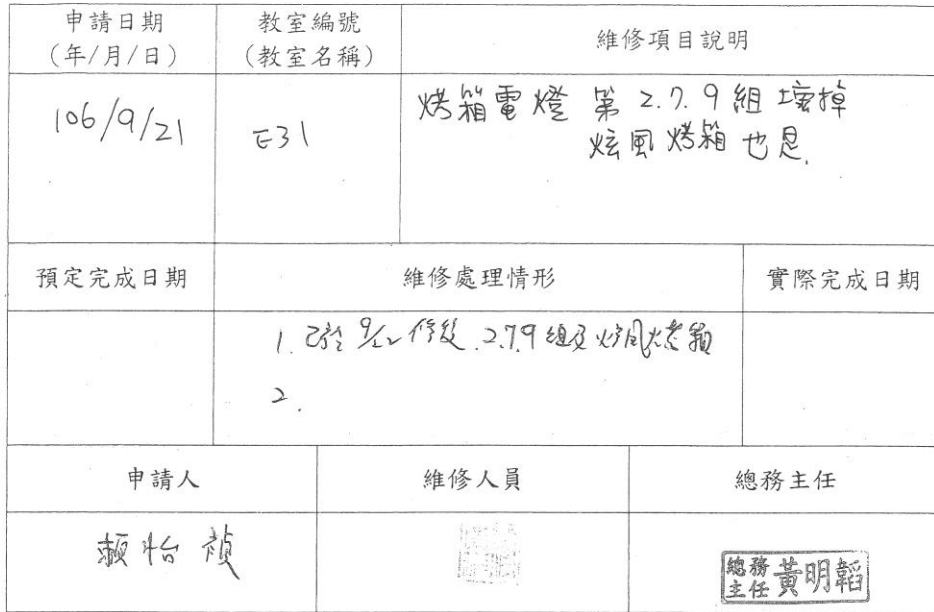 申請日期
(年/月/日)
教室編號
(教室名稱)
維修項目說明
106/9/21
E31
烤箱電燈 第 2.7.9 組 壞掉
炫風烤箱 也是.
預定完成日期
維修處理情形
實際完成日期
1. 已於 9/22 修復 .2.7.9 組及炫風烤箱
2.
申請人
維修人員
總務主任
賴怡禎
總務
主任 黃明韜